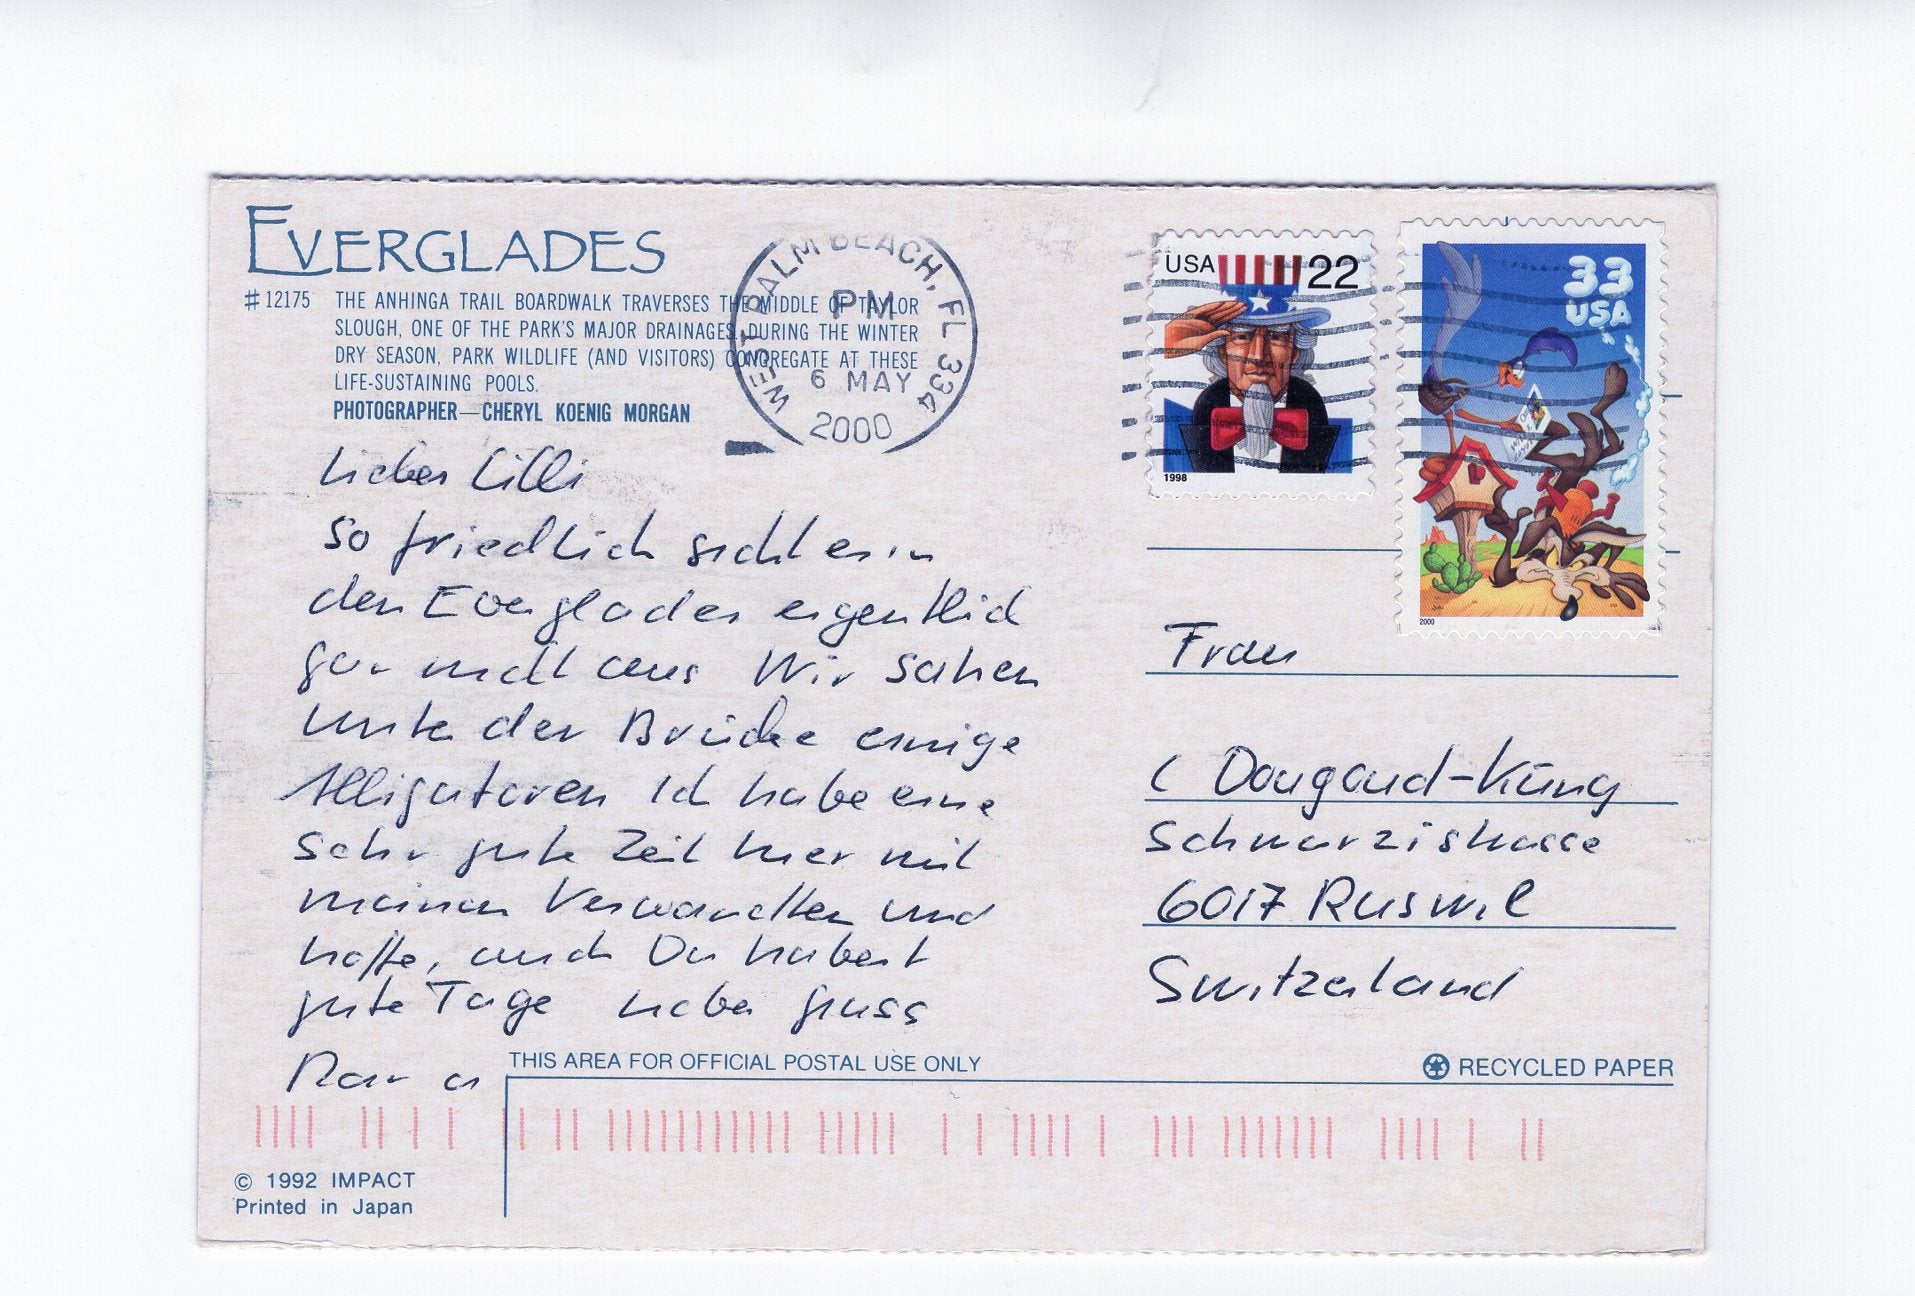 EVERGLADES
#12175 THE ANHINGA TRAIL BOARDWALK TRAVERSES THE MIDDLE OF TAYLOR
SLOUGH, ONE OF THE PARK'S MAJOR DRAINAGES. DURING THE WINTER
DRY SEASON, PARK WILDLIFE (AND VISITORS) CONGREGATE AT THESE
LIFE-SUSTAINING POOLS.
PHOTOGRAPHER—CHERYL KOENIG MORGAN
WEST PALM BEACH, FL 334
PM
6 MAY
2000
USA 22
1998
33
USA
2000
Liebes Lilli
So friedlich sieht es in
den Everglades eigentlich
gar nicht aus Wir sahen
unter der Brücke einige
Alligatoren Ich habe eine
sehr gute Zeit hier mit
meinen Verwandten und
hoffe, auch Du habest
gute Tage lieber Gruss
Frau
C Dougoud-Küng
Schwarzistrasse
6017 Ruswil
Switzerland
THIS AREA FOR OFFICIAL POSTAL USE ONLY
RECYCLED PAPER
© 1992 IMPACT
Printed in Japan